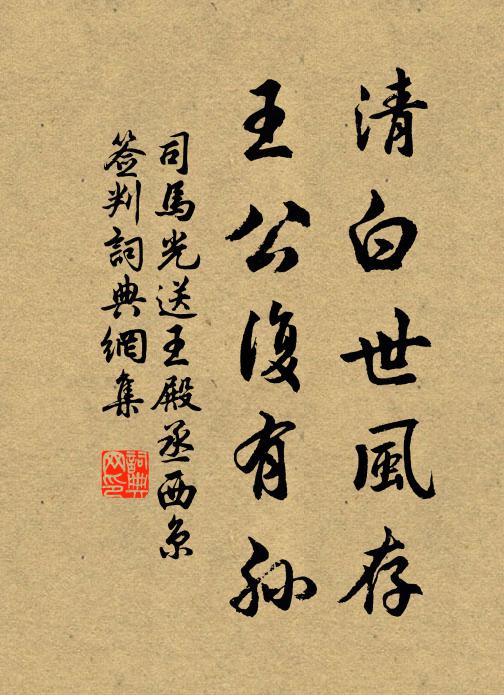 清白世風存
王公復有孫
司馬光送王殿丞西京
簽判詞典網集
詞典網印